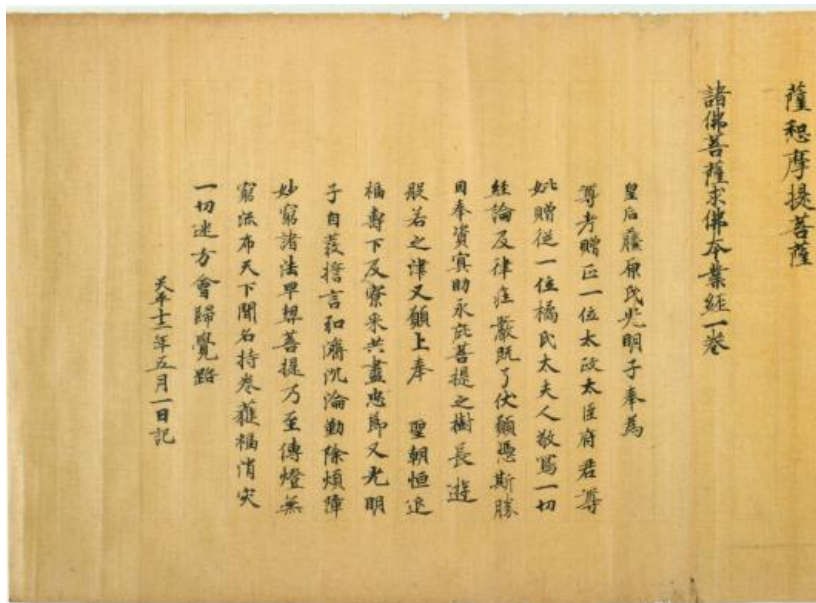 薩惒摩提菩薩
諸佛菩薩求佛本業經一卷
皇后藤原氏光明子奉為
尊考贈正一位太政太臣府君尊
妣贈從一位橘氏太夫人敬寫一切
經論及律莊嚴既了伏願憑斯勝
因奉資冥助永庇菩提之樹長遊
般若之津又願上奉 聖朝恒延
福壽下及寮采共盡忠節又光明
子自發誓言弘濟沉淪勤除煩障
妙窮諸法早契菩提乃至傳燈無
窮流布天下聞名持卷獲福消灾
一切迷方會歸覺路
天平十二年五月一日記